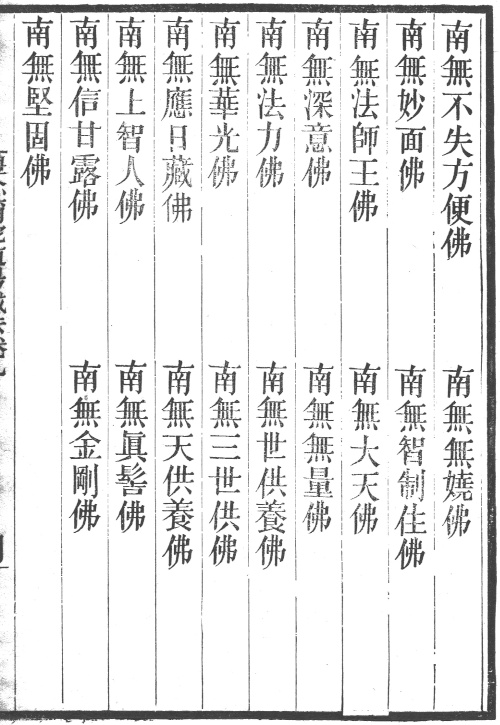 南無不失方便佛　南無無嬈佛
南無妙面佛　南無智制住佛
南無法師王佛　南無大天佛
南無深意佛　南無無量佛
南無法力佛　南無世供養佛
南無華光佛　南無三世供佛
南無應日藏佛　南無天供養佛
南無上智人佛　南無眞髻佛
南無信甘露佛　南無金剛佛
南無堅固佛